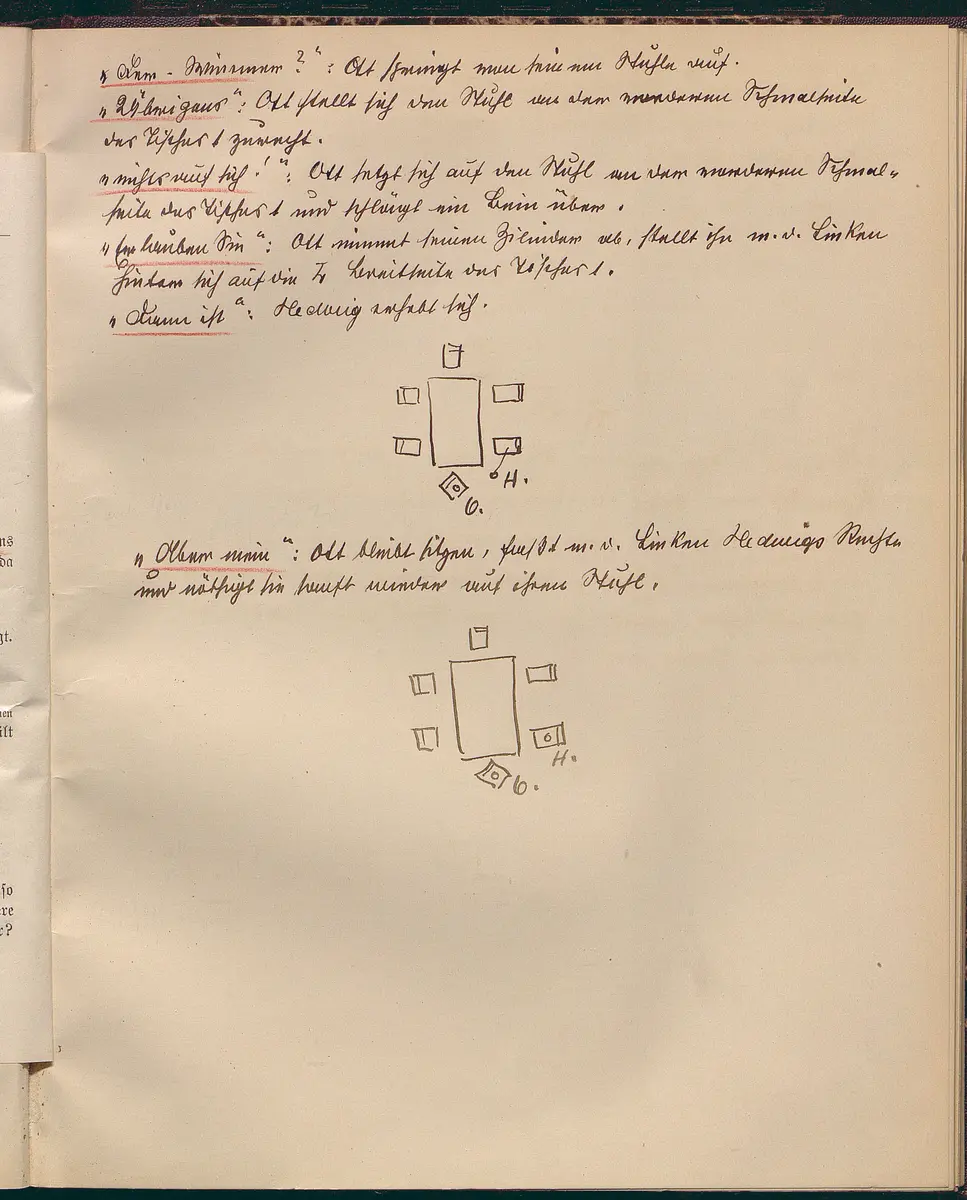 „Der - Wiesner?“: Ott springt von seinem Stuhle auf.
„Übrigens“: Ott stellt sich den Stuhl an der vorderen Schmalseite
des Tisches 1 zurecht.
„nichts auf sich!“: Ott setzt sich auf den Stuhl an der vorderen Schmal-
seite des Tisches 1 und schlägt ein Bein über.
„Erlauben Sie“: Ott nimmt seinen Zilinder ab, stellt ihn m. d. Linken
hinter sich auf die Breitseite des Tisches 1.
„Dann ist“: Hedwig erhebt sich.
H.
O.
„Aber nein“: Ott bleibt sitzen, faßt m. d. Linken Hedwigs Rechte
und nöthigt sie sanft wieder auf ihren Stuhl.
H.
O.
ns
da
gt.
nen
ilt
so
ere
r?